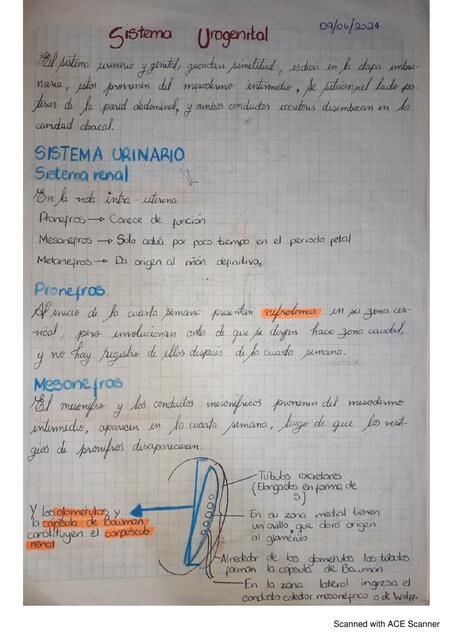 09/06/2024
Sistema Urogenital
El sistema urinario y genital, guardan similitud, es decir en la etapa embrio-
naria, estos provienen del mesodermo intermedio, se situan el lado pos
terior de la pared abdominal, y ambos conductos excretores desembocan en la
cavidad cloacal.
SISTEMA URINARIO
Sistema renal
En la vida intra-uterina
Pronefros → Carece de función
Mesonefros → Solo actúa por poco tiempo en el periodo fetal
Metanefros → Da origen al riñón definitivo.
Pronefros
Al inicio de la cuarta semana presentan nefrotomas, en su zona cer-
vical, pero involucionan antes de que se dirijan hacia zona caudal,
y no hay registro de ellos despues de la cuarta semana.
Mesonefros
El mesonefro y los conductos mesonefricos provienen del mesodermo
intermedio, aparecen en la cuarta semana, luego de que los vesti-
gios de pronefros desaparecieran.
Túbulos excretores
(Elongados en forma de
S)
Y los glomerulos y
la capsula de Bowman
constituyen el corpúsculo
renal
En su zona medial tienen
un ovillo, que dará origen
al glomerulo
Alrededor de los glomerulos los túbulos
forman la capsula de Bowman
En la zona lateral ingresa el
conducto colector mesonéfrico o de Wolff.
Scanned with ACE Scanner